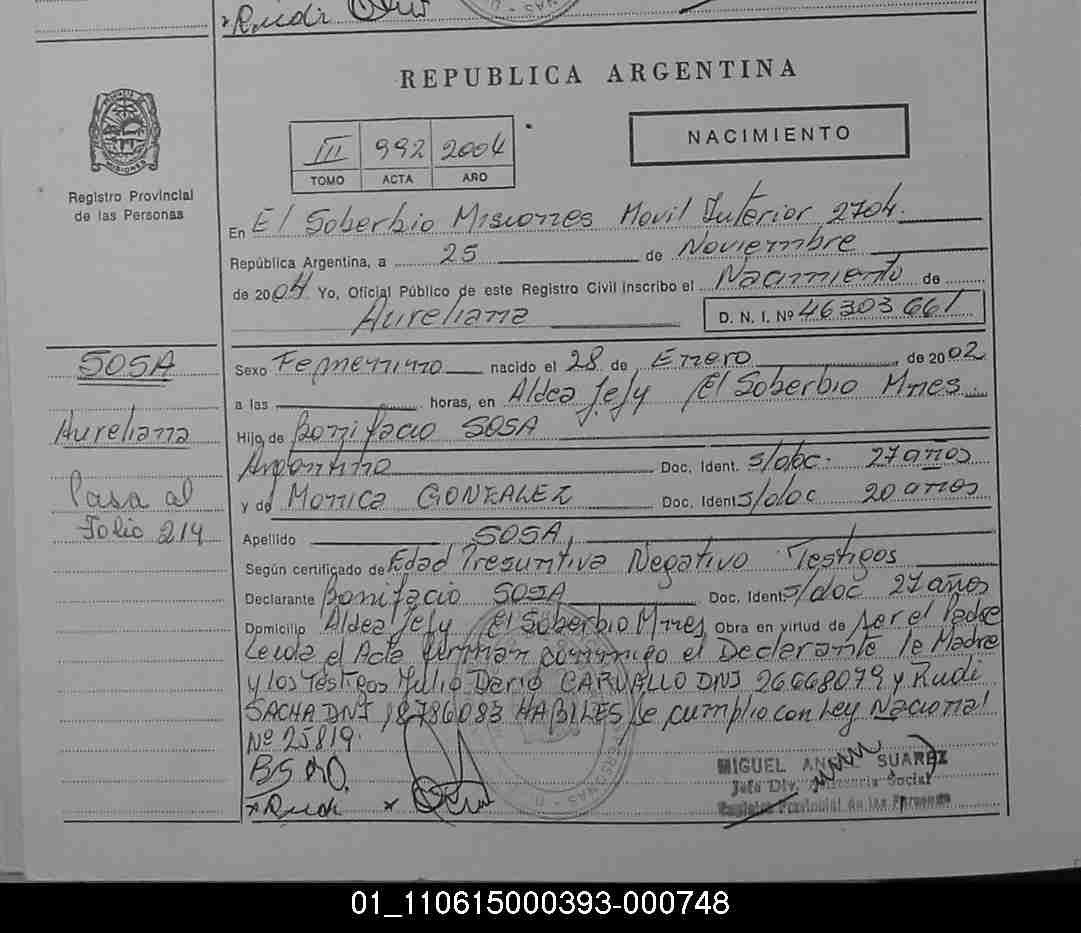 Rudi
REPUBLICA ARGENTINA
NACIMIENTO
III 992 2004
TOMO ACTA AÑO
MISIONES
Registro Provincial
de las Personas
En El Soberbio Misiones Movil Interior 2704.
República Argentina, a 25 de Noviembre
de 2004 Yo, Oficial Público de este Registro Civil inscribo el Nacimiento de
Aureliana D. N. I. Nº 46303661
SOSA
Aureliana
Pasa al
Folio 214
Sexo Femenino nacido el 28 de Enero de 2002
a las horas, en Aldea Jejy El Soberbio Mnes.
Hijo de Bonifacio SOSA
Argentino Doc. Ident. s/doc. 27 años
y de Monica GONZALEZ Doc. Ident. s/doc 20 años
Apellido SOSA
Según certificado de Edad Presuntiva Negativo Testigos
Declarante Bonifacio SOSA Doc. Ident. s/doc 27 años
Domicilio Aldea Jejy El Soberbio Mnes Obra en virtud de ser el Padre
Leida el Acta firman conmigo el Declarante la Madre
y los testigos Julio Dario CARVALLO DNI 26668079 y Rudi
SACHA DNI 18786083 HABILES se cumplio con Ley Nacional
Nº 25819.
MIGUEL ANGEL SUAREZ
Jefe Div. Asistencia Social
Registro Provincial de las Personas
Rudi
01_110615000393-000748